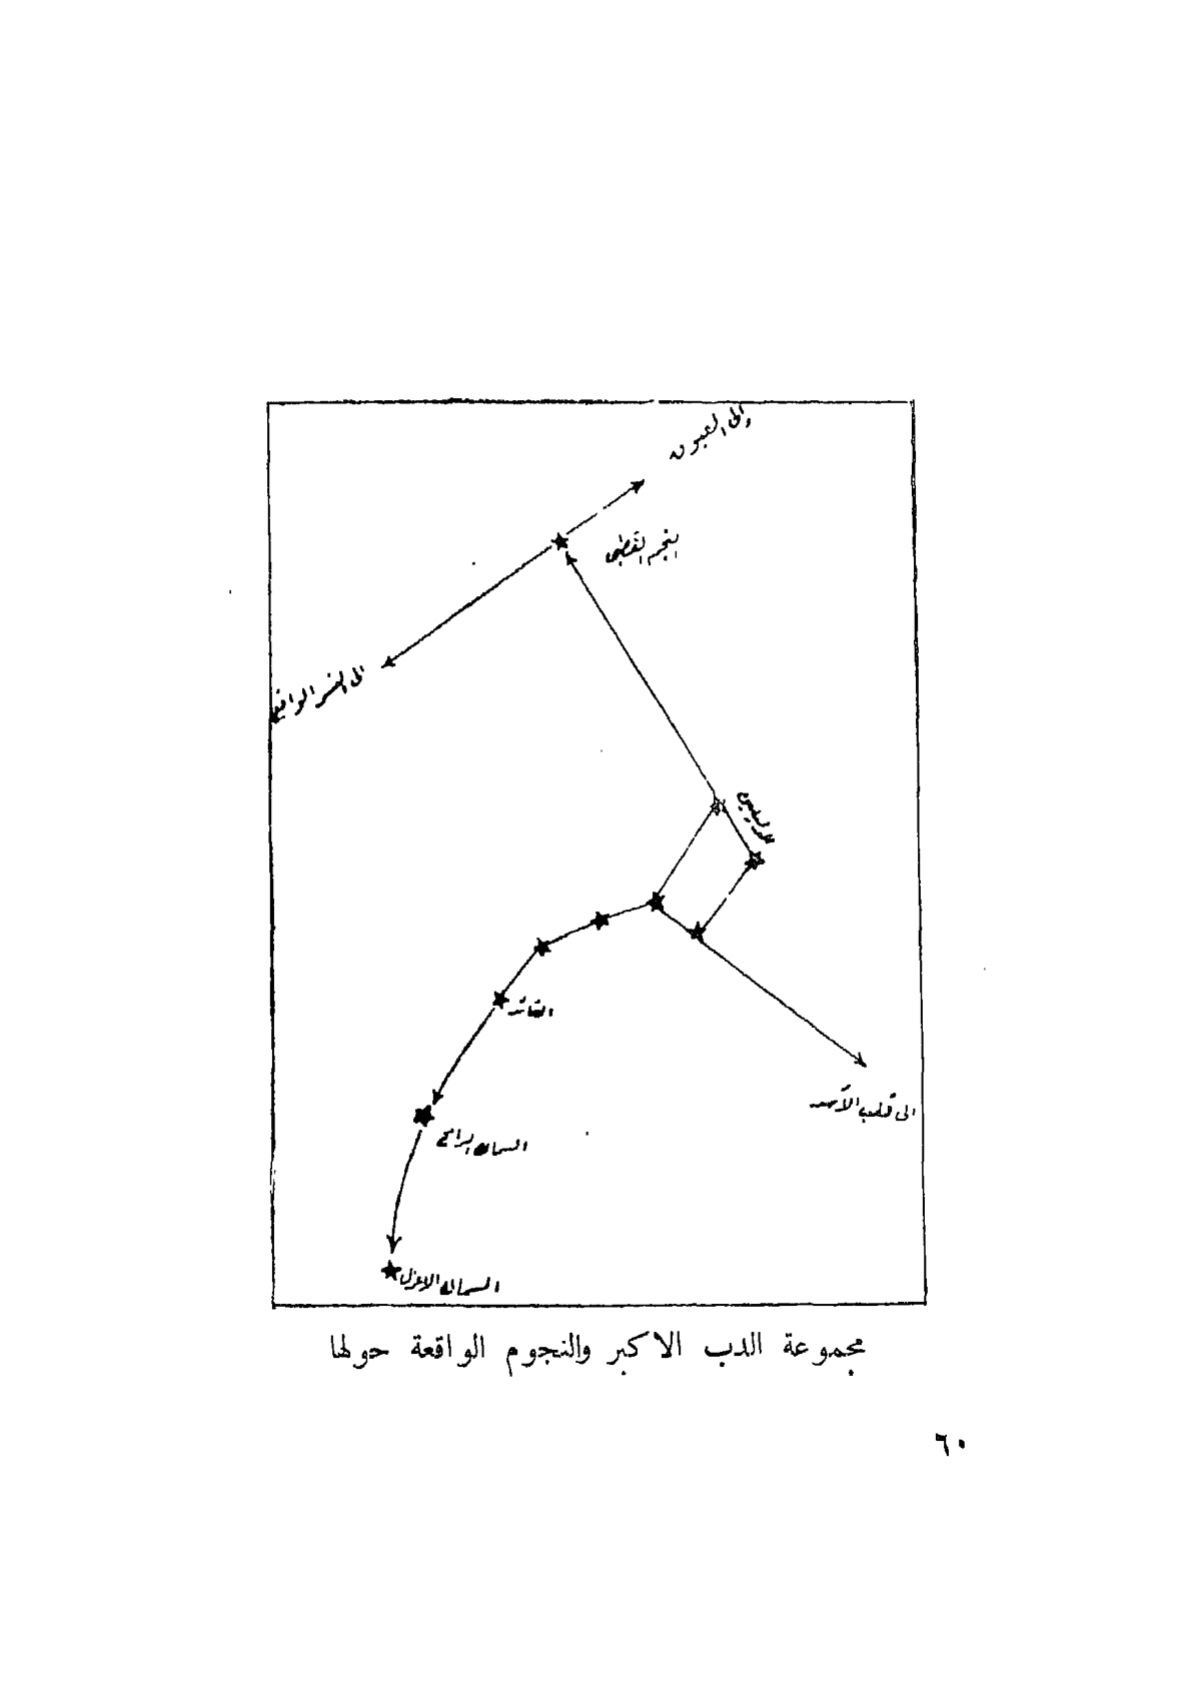 والى العيوق
النجم القطبي
الى النسر الواقع
الدليلين
القائد
الى قلب الأسد
السماك الرامح
السماك الاعزل
مجموعة الدب الاكبر والنجوم الواقعة حولها
٦٠